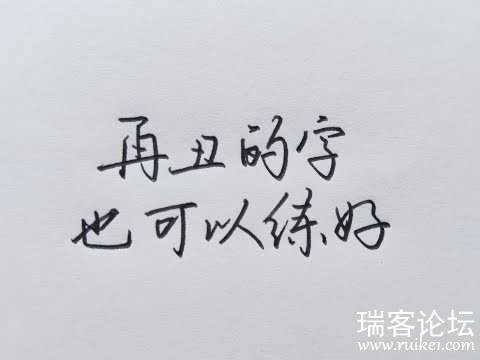 再丑的字
也可以练好
瑞客论坛
www.ruike1.com